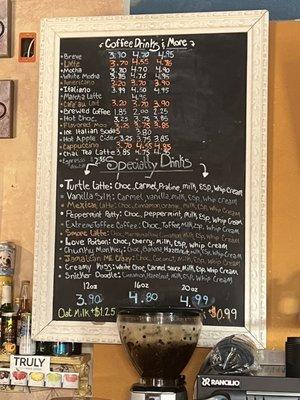 Coffee Drinks & More
Breve 3.90 4.70 4.95
Latte 3.70 4.55 4.75
Mocha
White Mocha 3.75 4.75 4.95
Americano
Italiano 3.99 4.50 4.95
Matcha Latte
Cafe au Lait 3.20 3.70 3.90
Brewed Coffee 1.85 2.00 2.25
Hot Choc. 3.25 3.75 3.85
Flavored Moo
Ice Italian Sodas 3.80
Hot Apple Cider 3.25 3.85
Cappuccino 3.70 4.55
Chai Tea Latte 3.85 4.75
Espresso
Specialty Drinks
Turtle Latte: Choc, Carmel, Praline, milk, ESP, Whip Cream
Vanilla Silk: Carmel, vanilla, milk, ESP, Whip Cream
Mexican Latte: Choc, Cinnamon, orange, milk, ESP, Whip Cream
Peppermint Patty: Choc, peppermint, milk, ESP, Whip Cream
Extreme Toffee Coffee: Choc, Toffee, milk, ESP, Whip Cream
Smore Latte: Choc, Cinnamon, milk, ESP, Whip Cream
Love Poison: Choc, Cherry, milk, ESP, Whip Cream
Chunky Monkey: Choc, Banana, milk, ESP, Whip Cream
Jamaican Me Crazy: Choc, Coconut, milk, ESP, Whip Cream
Creamy Kiss: White Choc, Carmel Sauce, milk, ESP, Whip Cream
Snicker Doodle: Cinnamon, Hazelnut, milk, ESP, Whip Cream
12oz 16oz 20oz
3.90 4.80 4.99
Oat Milk +$1.25 $0.99
TRULY
RANCILIO